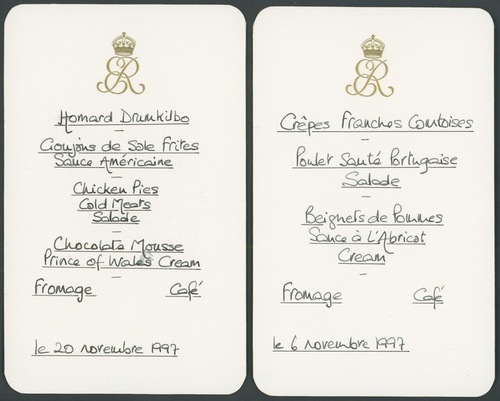 Homard Drumkilbo
Goujons de Sole Frites
Sauce Américaine
Chicken Pies
Cold Meats
Salade
Chocolate Mousse
Prince of Wales Cream
Fromage Café
le 20 novembre 1997
Crêpes Franches Comtoises
Poulet Sauté Portugaise
Salade
Beignets de Pommes
Sauce à L'Abricot
Cream
Fromage Café
le 6 novembre 1997